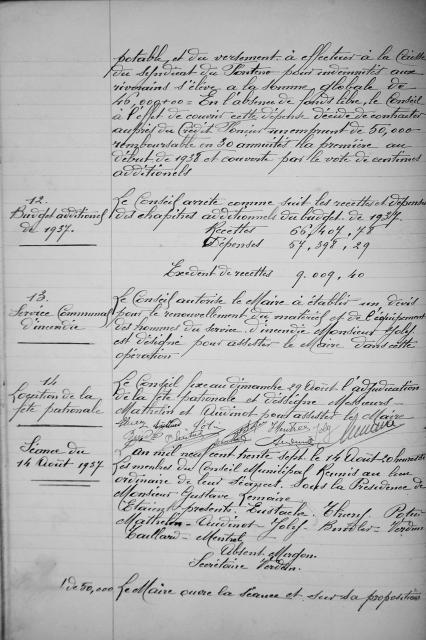 potable, et du versement à effectuer à la Caisse
du Syndicat du pour indemnités aux
riverains s'élève à la somme globale de
46,000+00 = En l'absence de fonds libre, le Conseil
à l'effet de couvrir cette dépense décide de contracter
auprès du Crédit Foncier un emprunt de 50,000
remboursable en 30 annuités la première au
début de 1938 et couverte par le vote de centimes
additionnels
12.
Budget additionnel
de 1937.
Le Conseil arrête comme suit les recettes et dépenses
des chapitres additionnels du budget de 1937
Recettes 66,407,78
Dépenses 57,398,29
Excédent de recettes 9.009,40
13.
Service Communal
d'incendie
Le Conseil autorise le Maire à établir un devis
pour le renouvellement du matériel et de l'équipement
des hommes du service d'incendie Monsieur Joly
est désigné pour assister le Maire dans cette
opération
14
de la
fête patronale
Le Conseil fixe au dimanche 29 Août l'adjudication
de la fête patronale et désigne Messieurs
Mathelin et Oudinot pour assister le Maire
Séance du
14 Août 1937
L'an mil neuf cent trente sept le 14 Août 20 heures
Les membres du Conseil Municipal Réunis au lieu
ordinaire de leur Séances. Sous la Présidence de
Monsieur Gustave Lemaire
Etaient présents: Eustache
Mathelin - Oudinot - Joly - Verdun
Gaillard -
Absent
Secrétaire Verdun.
1 de 50,000
Le Maire ouvre la séance et sur sa proposition